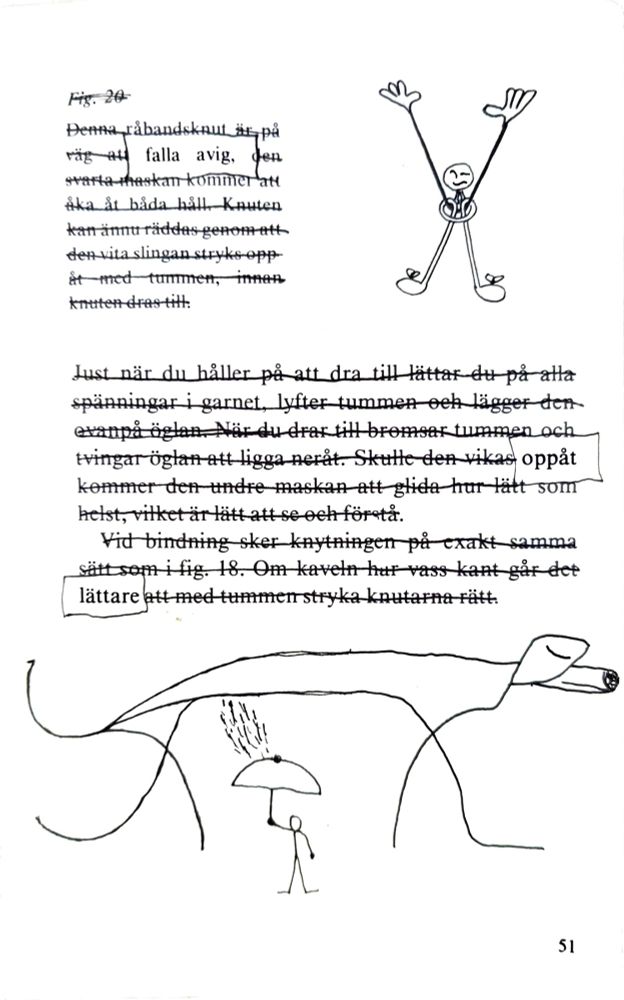 Fig. 20
Denna råbandsknut är på
väg att falla avig, den
svarta maskan kommer att
åka åt båda håll. Knuten
kan ännu räddas genom att
den vita slingan stryks opp
åt med tummen, innan
knuten dras till.
Just när du håller på att dra till lättar du på alla
spänningar i garnet, lyfter tummen och lägger den
ovanpå öglan. När du drar till bromsar tummen och
tvingar öglan att ligga neråt. Skulle den vikas oppåt
kommer den undre maskan att glida hur lätt som
helst, vilket är lätt att se och förstå.
Vid bindning sker knytningen på exakt samma
sätt som i fig. 18. Om kaveln har vass kant går det
lättare att med tummen stryka knutarna rätt.
51